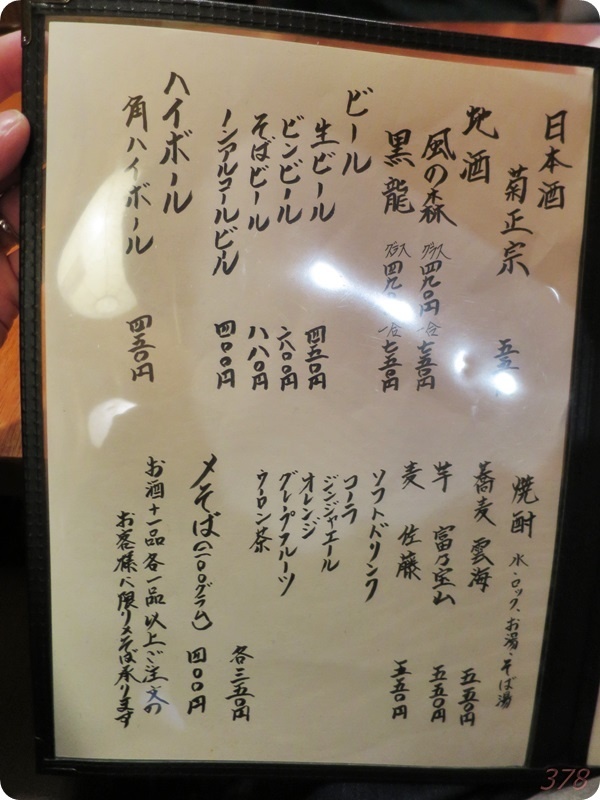 日本酒
菊正宗 五五
地酒
風の森 グラス 四九〇円 一合 七五〇円
黒龍 グラス 四九〇 一合 七五〇円
ビール
生ビール 四五〇円
ビンビール 六〇〇円
そばビール 八八〇円
ノンアルコールビール 四〇〇円
ハイボール
角ハイボール 四五〇円
焼酎 水・ロック・お湯・そば湯
蕎麦 雲海 五五〇円
芋 富乃宝山 五五〇円
麦 佐藤 五五〇円
ソフトドリンク
コーラ
ジンジャエール
オレンジ
グレープフルーツ
ウーロン茶
各三五〇円
〆そば(一〇〇グラム) 四〇〇円
お酒+一品 各一品以上ご注文の
お客様に限り〆そば承ります
378